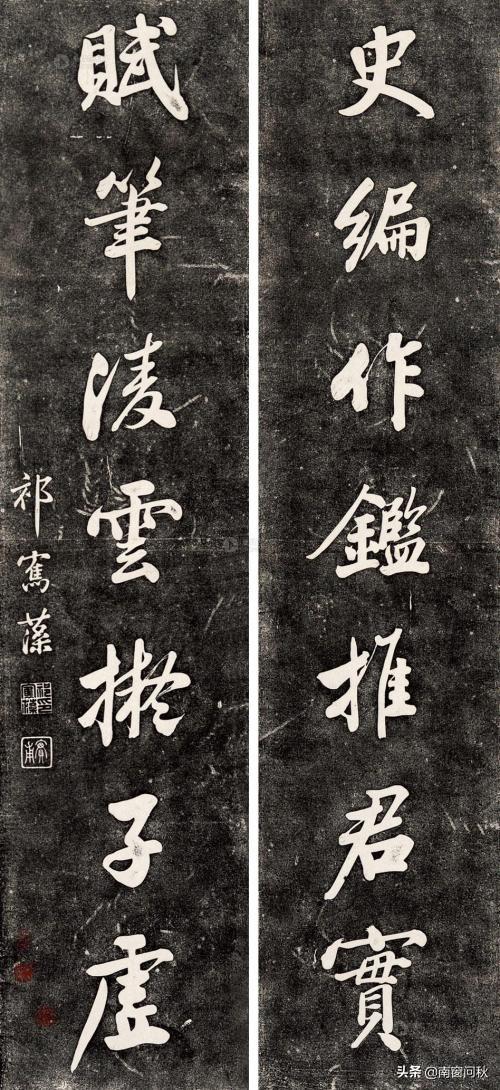 史編作鑑推君實
賦筆凌雲擬子虛
祁寯藻
头条 @南窗问秋